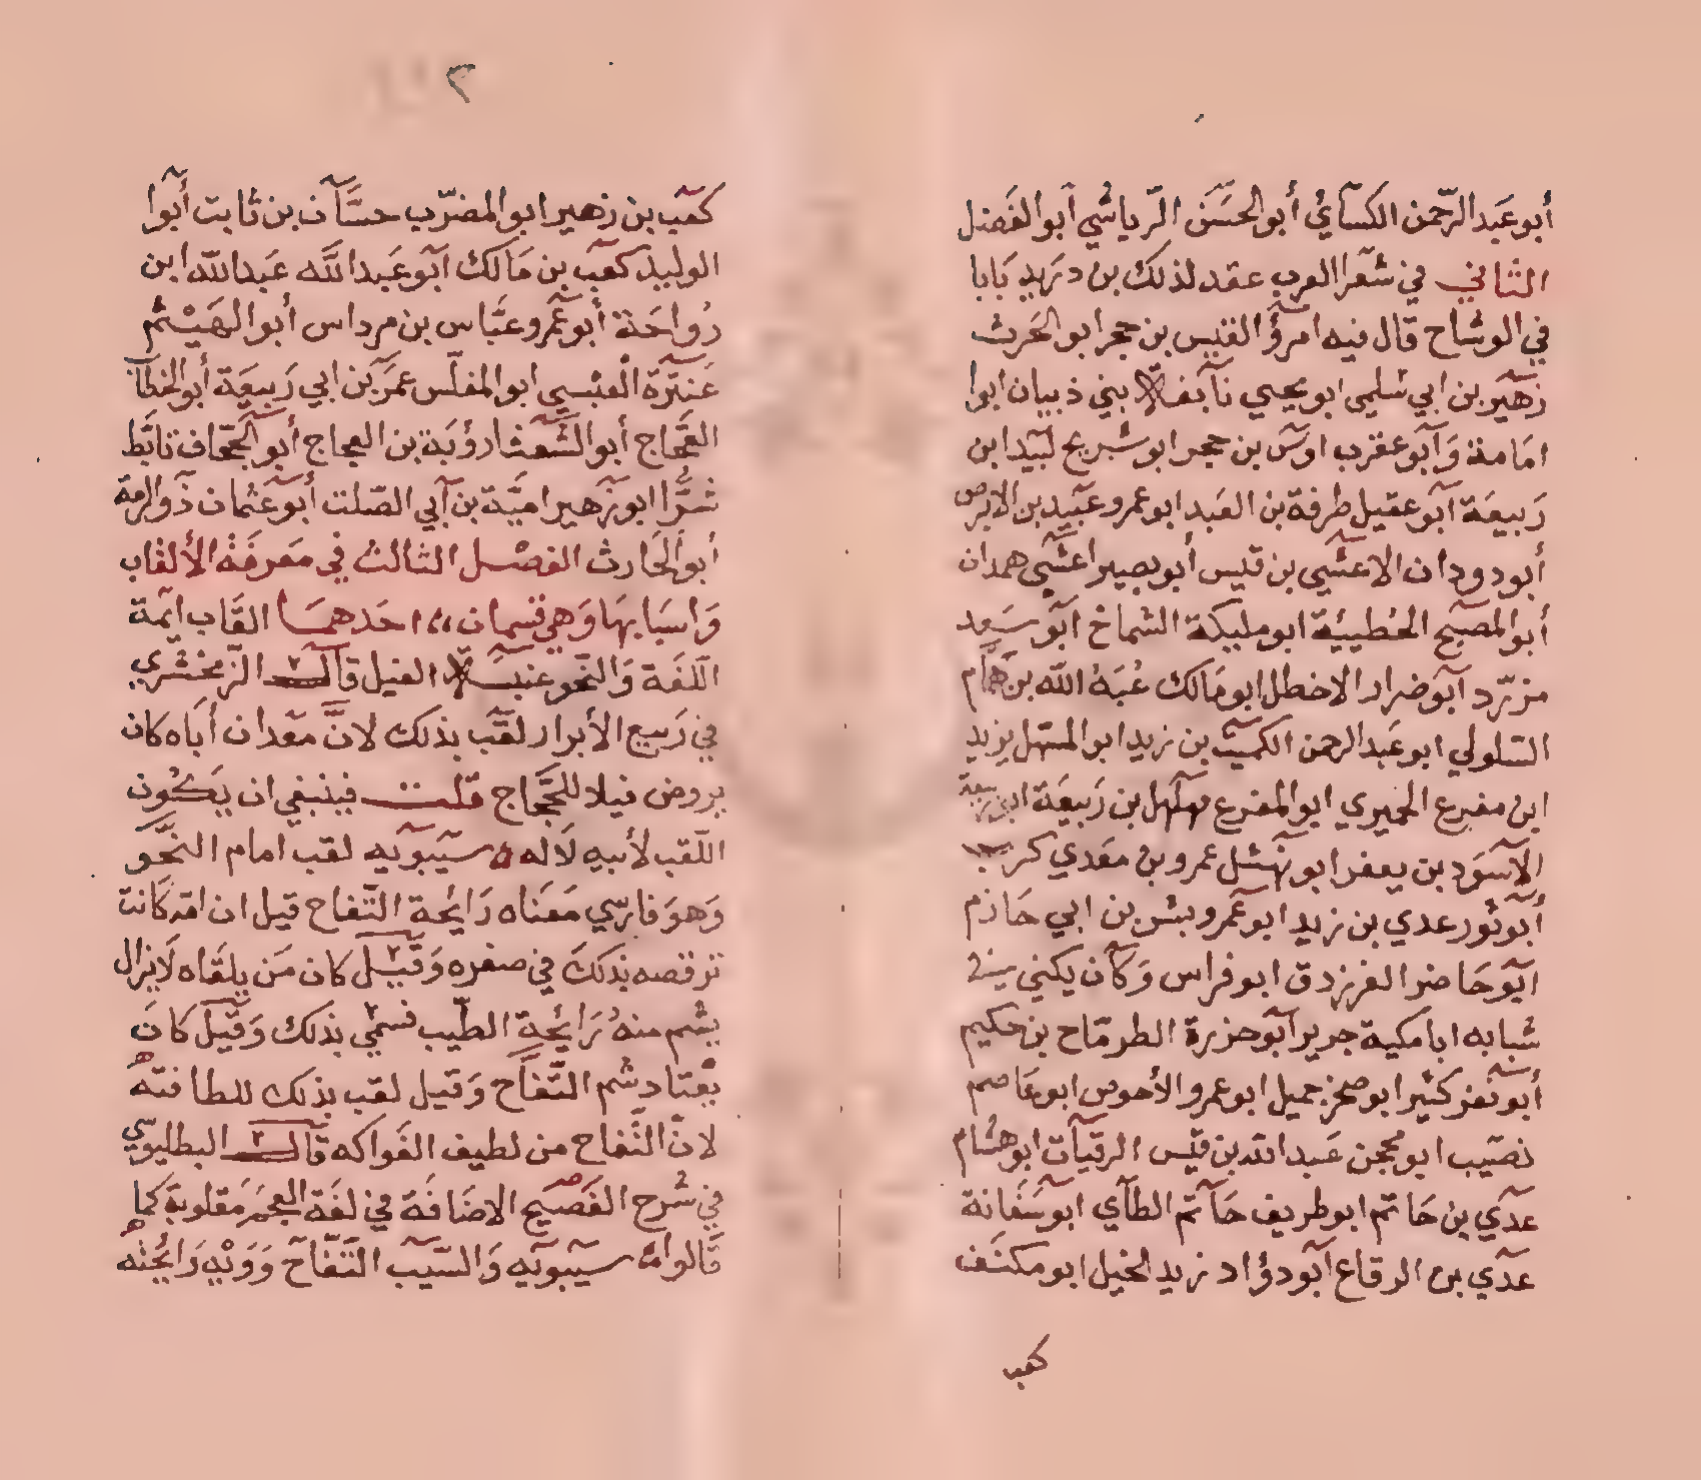 أبو عَبد الرّحمن الكسآئي أبو الحسَن الرّياشي أبو الفَضل
الثاني في شعَرا العرب عقد لذلك بن دريد بَابا
في الوشاح قال فيه امرؤ القيس بن حجر ابو الحَرث
زهَير بن ابي سُلمى ابو يحيي نآبغة بني ذبيان ابوا
امَامة وَآبو عقرب اوسَ بن حجر ابو شريح لبَيد ابن
رَبيعَة آبو عقيل طرفة بن العَبد ابو عمرو عَبيد بن الابرص
أبو دودان الاعشَي بن قيس أبو بصير اعشَي همدان
أبو المصبح الحُطيئة ابو مليكة الشماخ آبو سَعِد
مزرّد آبو ضرار الاخطل ابو مَالك عُبَهُ الله بن همَّام
السّلولي ابو عَبد الرحمن الكميَت بن زيد ابو المستهل يزيد
ابن مفرع الحميري ابو المفرع مهلَهل بن رَبيعَة ابو ربيعَة
الآسوَد بن يعفر ابو نهَشل عمرو بن معَدي كرب
أبو ثور عدي بن زيد ابو عَمرو بشر بن ابي حَازم
ابَو حَاضر الفرزدق ابو فراس وَكآن يكني في
شبابه ابا مكية جرير آبو حزرة الطرمّاح بن حكيم
أبو نَفر كثير ابو صخر جميل ابو عمرو الأحوص ابو عَاصم
نصَيب ابو محجن عَبد الله بن قيَس الرقيآت ابو هشام
عدَي بن حَاتم ابو طريف حَآتم الطآي ابو سَفَانة
عدَي بن الرقاع آبو دؤاد زيد الخيل ابو مكنَف
كعب
٢
كعَب بن زهير ابو المضرّب حسَّآن بن ثابت أبوا
الوليد كعَب بن مَالك آبو عَبد اللَّه عَبد اللّه ابن
رُواحَة أبو عَمرو عبَّاس بن مرداس أبو الهَيْثم
عَنترَة العبْسي ابو المغلّس عمَر بَن ابي رَبيعَة أبو الخطآب
العجَّاج أبو الشّعثا رؤبَة بن العجاج أبو الجحّاف تابَّط
شرًّا ابو زَهير اميَّة بن آبي الصّلت أبو عَثمان ذَو الرمة
أبو الحَارث الفصْل الثالث في معَرفَة الألقَاب
وَاسبَابهَا وَهي قسمان احَدهمَا القَاب ايَمة
اللّغَة وَالنحَو عنبسَة الفيل قال الزمخشري
في رَبيع الأبرار لقَب بذلك لانَّ معَدان أبَاه كان
يروض فيلا للحجَّاج قلت فينبغي ان يَكوُن
اللّقب لأبيه لَا له ه سيَبوَيه لقب امام النحَّو
وَهوَ فارسي معَنَاه رَايحُة التّفاح قيل ان امّه كَانت
ترقصه بذلكَ في صغره وَقَيل كان مَن يلقَاه لَا يزال
يشم منهُ رَايحَة الطّيب فسمّي بذلك وَقيَل كانَ
يعْتاد شم التَّفاَح وَقيل لقب بذلك للطافته
لانّ التَّفاح من لطيف الفَواكه قَال البطليوسي
في شرح الفَصيَح الاضَافَة في لغَة العجَم مَقلوبة كما
قَالوا سيَبويَه وَالسّيَب التَّفّآح وَوَيْهِ رَايحُته